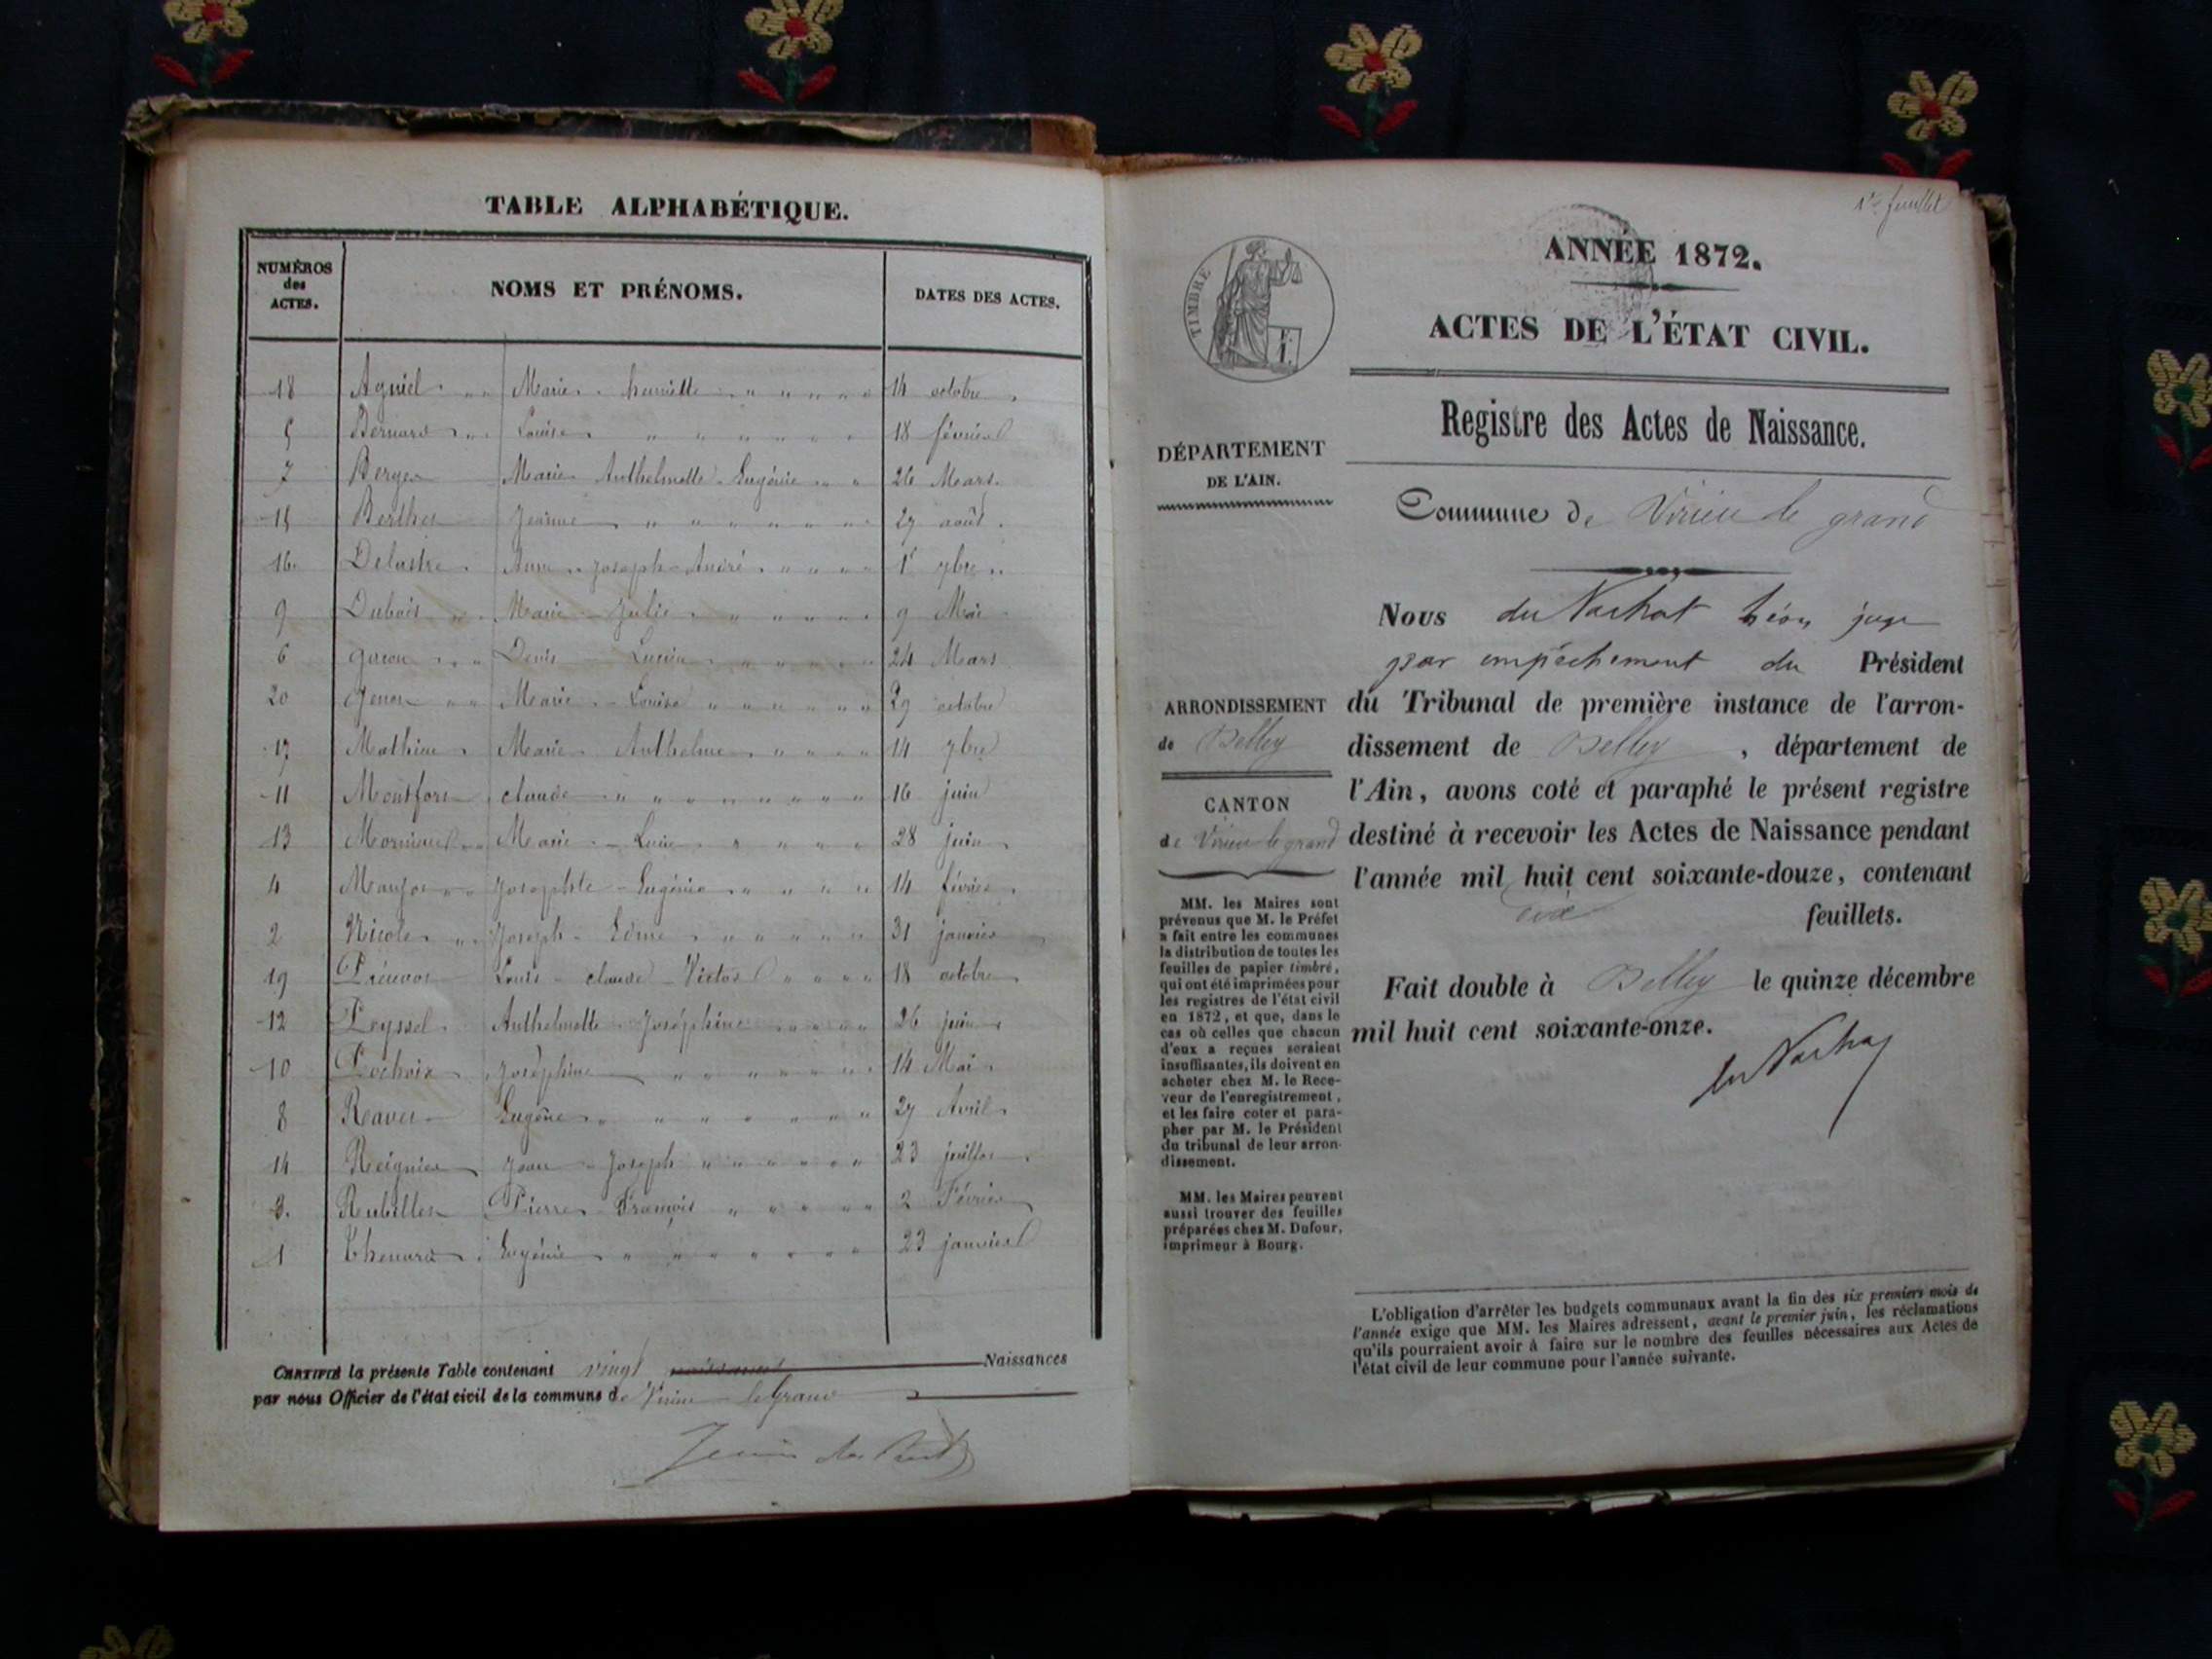 TABLE ALPHABÉTIQUE.
NUMÉROS des ACTES. NOMS ET PRÉNOMS. DATES DES ACTES.
18 Agniel Marie henriette 14 octobre
5 Bernard Louise 18 février
7 Berger Marie Anthelmette Eugénie 26 Mars.
15 Berthet Jeanne 27 août.
16. Delastre Joseph André 1er 7bre
9 Dubois Marie Julie 9 Mai
6 Denis 24 Mars
20 Marie Louise 29 octobre
17 Mathieu Marie Anthelme 14 7bre
11 Montfort claude 16 juin
13 Marie 28 juin
4 Josephte Eugénie 14 février
2 Nicole Joseph 31 janvier
19 Louis claude Victor 18 octobre
12 Peyssel Anthelmette Joséphine 26 juin
10 Pochoix Joséphine 14 Mai
8 Ravet Eugène 27 Avril
14 Reignier Jean Joseph 23 juillet
3. Rubellin Pierre François 2 Février
1 Thenard Eugénie 23 janvier
CERTIFIÉ la présente Table contenant vingt Naissances
par nous Officier de l'état civil de la commune de Virieu le Grand
1er feuillet
ANNÉE 1872.
TIMBRE
ACTES DE L'ÉTAT CIVIL.
Registre des Actes de Naissance.
DÉPARTEMENT
DE L'AIN.
Commune de Virieu le grand
Nous du Nachat Léon juge
par empêchement du Président
du Tribunal de première instance de l'arron-
dissement de Belley, département de
l'Ain, avons coté et paraphé le présent registre
destiné à recevoir les Actes de Naissance pendant
l'année mil huit cent soixante-douze, contenant
feuillets.
Fait double à Belley le quinze décembre
mil huit cent soixante-onze.
du Nachat
ARRONDISSEMENT
de Belley
CANTON
de Virieu le grand
MM. les Maires sont
prévenus que M. le Préfet
a fait entre les communes
la distribution de toutes les
feuilles de papier timbré,
qui ont été imprimées pour
les registres de l'état civil
en 1872, et que, dans le
cas où celles que chacun
d'eux a reçues seraient
insuffisantes, ils doivent en
acheter chez M. le Rece-
veur de l'enregistrement,
et les faire coter et para-
pher par M. le Président
du tribunal de leur arron-
dissement.
MM. les Maires peuvent
aussi trouver des feuilles
préparées chez M. Dufour,
imprimeur à Bourg.
L'obligation d'arrêter les budgets communaux avant la fin des six premiers mois de
l'année exige que MM. les Maires adressent, avant le premier juin, les réclamations
qu'ils pourraient avoir à faire sur le nombre des feuilles nécessaires aux Actes de
l'état civil de leur commune pour l'année suivante.